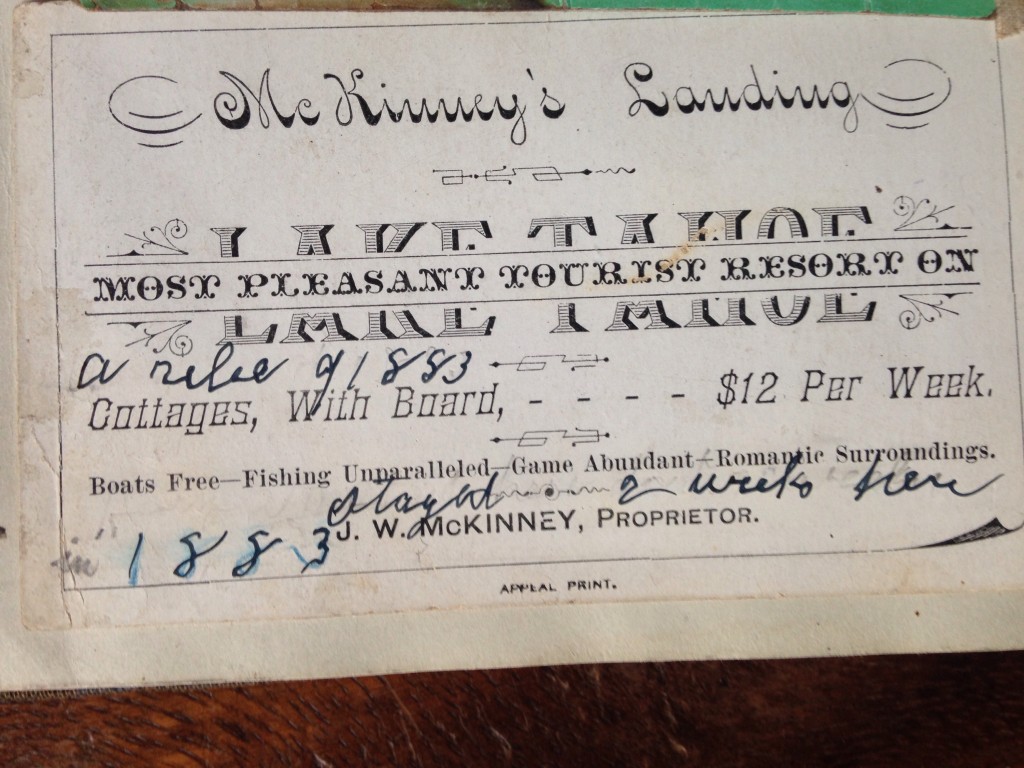 McKinney's Landing
LAKE TAHOE
MOST PLEASANT TOURIST RESORT ON
LAKE TAHOE
a relic of 1883
Cottages, With Board, - - - - $12 Per Week.
Boats Free—Fishing Unparalleled—Game Abundant—Romantic Surroundings.
stayed 2 weeks here
J. W. McKINNEY, PROPRIETOR.
in 1883
APPEAL PRINT.